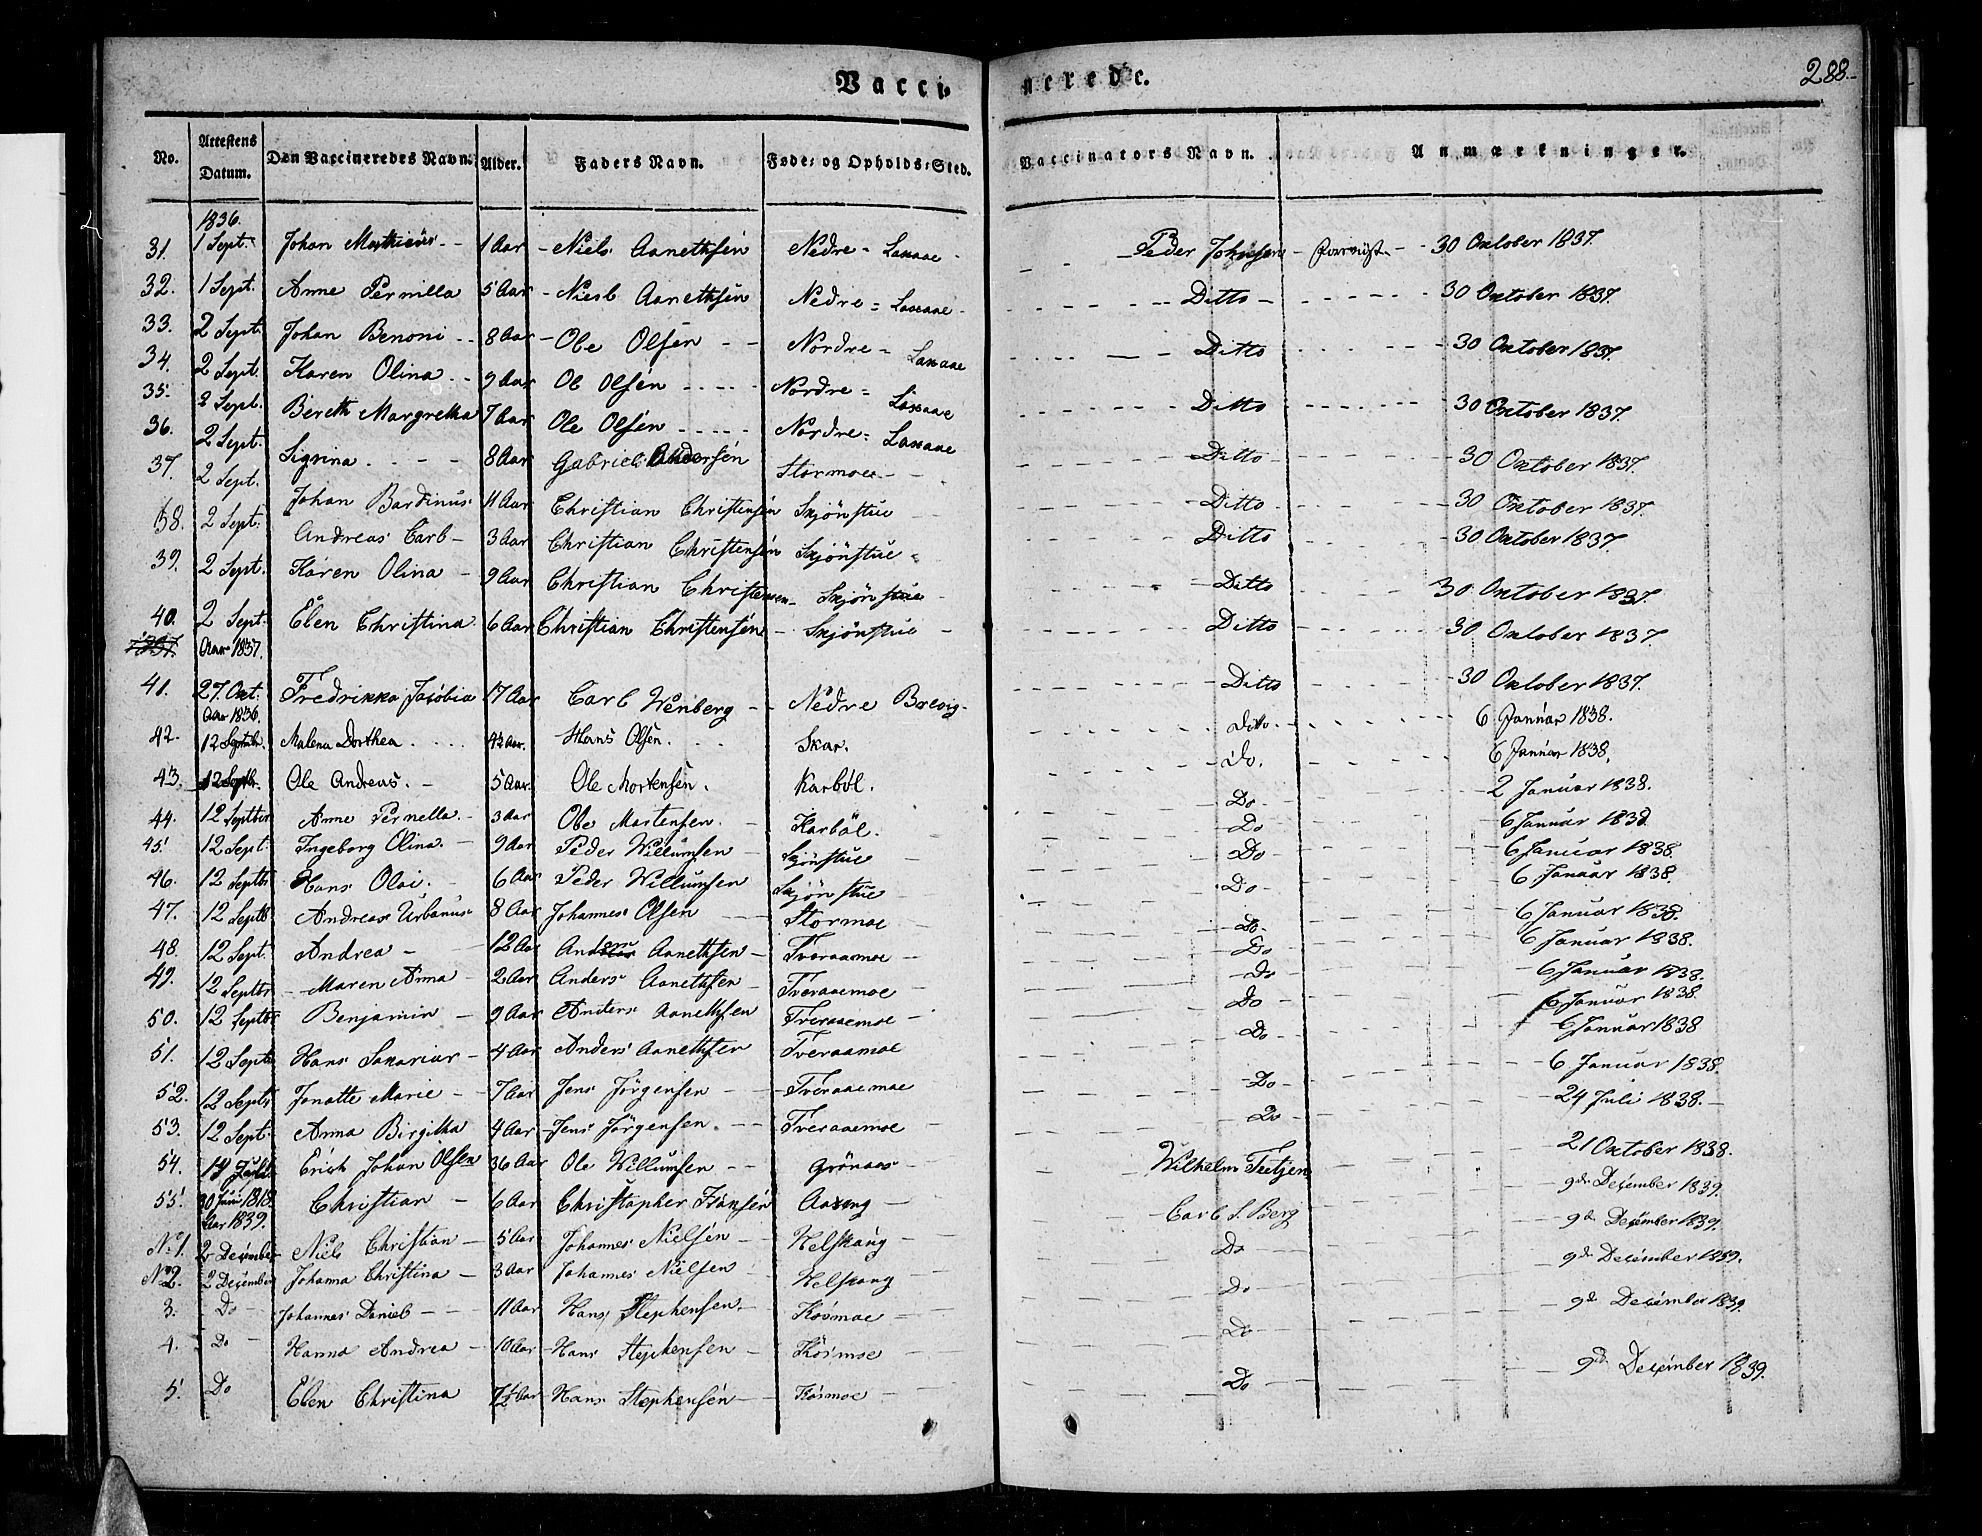 Vaccinerede.
288.
No. Attestens Datum. Den Vaccineredes Navn. Alder. Faders Navn. Føde- og Opholds-Sted. Vaccinators Navn. Anmærkninger.
1836.
31. 1 Sept. Johan Mathias 1 Aar Niels Aanethsen Nedre Laxaae Peder Johnsen 30 October 1837.
32. 1 Sept. Anne Pernilla 5 Aar Niels Aanethsen Nedre Laxaae Ditto 30 October 1837.
33. 2 Sept. Johan Benoni 8 Aar Ole Olsen Nordre Laxaae Ditto 30 October 1837.
34. 2 Sept. Karen Olina 9 Aar Ol Olsen Nordre Laxaae Ditto 30 October 1837.
35. 2 Sept. Bereth Margretha 7 Aar Ole Olsen Nordre Laxaae Ditto 30 October 1837.
36. 2 Sept. Sigrina 8 Aar Gabriel Andersen Stormoe Ditto 30 October 1837.
37. 2 Sept. Johan Bardinus 11 Aar Christian Christensen Skjönstue Ditto 30 October 1837.
38. 2 Sept. Andreas Carl 3 Aar Christian Christensen Skjönstue Ditto 30 October 1837.
39. 2 Sept. Karen Olina 9 Aar Christian Christensen Skjönstue Ditto 30 October 1837.
40. 2 Sept. Elen Christina 6 Aar Christian Christensen Skjönstue Ditto 30 October 1837.
1837. Aar 1837.
41. 27 Okt. Fredrikka Jacobia 17 Aar Carl Wenberg Nedre Brevig Ditto 30 October 1837.
Aar 1836.
42. 12 Septemb. Malena Dorthea 42 Aar. Hans Olsen Skar. Ditto 6 Januar 1838.
43. 12 Septb. Ole Andreas 5 Aar Ole Mortensen. Karböl. Do. 6 Januar 1838.
44. 12 Septbr Anne Pernella 3 Aar Ole Mortensen. Karböl. Do 2 Januar 1838.
45. 12 Sept. Ingeborg Olina 9 Aar Peder Willumsen Skjönstue Do 6 Januar 1838
46. 12 Septbr Hans Olai. 6 Aar Peder Willumsen Skjönstue Do 6 Januar 1838.
47. 12 Septb Andreas Urbanus 8 Aar Johannes Olsen Stormoe Do 6 Januar 1838.
48. 12 Sept. Andrea 12 Aar Anders Aanethsen Tveraamoe Do 6 Januar 1838.
49. 12 Septbr Maren Anna 2 Aar Anders Aanethsen Tveraaemoe Do 6 Januar 1838.
50. 12 Septbr Benjamin 9 Aar Anders Aanethsen Tveraaemoe Do 6 Januar 1838.
51. 12 Septbr Hans Sakarias 4 Aar Anders Aanethsen Tveraamoe Do 6 Januar 1838.
52. 12 Septbr Jonette Marie 7 Aar Jens Jörgensen Tveraaemoe Do 6 Januar 1838
53. 12 Sept. Anna Birgitha 4 Aar Jens Jörgensen. Tveraaemoe Do 6 Januar 1838.
54. 14 Erich Johan Olsen 36 Aar Ole Willumsen Grönaas Wilhelm 24 Juli 1838.
55. 30 Juni 1818. Christian 6 Aar Christopher Aaseng Carl S. Berg 21 October 1838.
Aar 1839.
No 1. 2 December Niels Christian 5 Aar Johannes Nielsen Helskang Do 9de December 1839.
No 2. 2 December Johanna Christina 3 Aar Johannes Nielsen Helskang Do 9d December 1839.
3. Do Johannes Daniel 11 Aar Hans Stephensen Kosmoe Do 9de December 1839.
4. Do Hanna Andrea 10 Aar Hans Stephensen Kosmoe Do 9d December 1839.
5. Do Elen Christina 7½ Aar Hans Stephensen Kosmoe Do 9de December 1839.